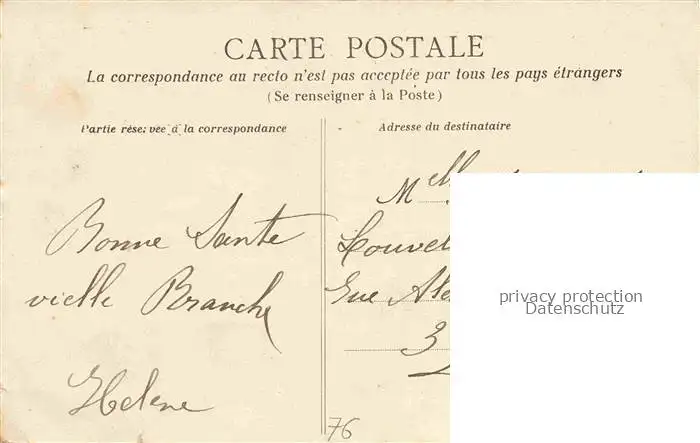 CARTE POSTALE
La correspondance au recto n'est pas acceptée par tous les pays étrangers
(Se renseigner à la Poste)
Partie réservée à la correspondance
Adresse du destinataire
Bonne Sante
vieille Branche
Helene
Melle
Louvel
Rue Ale
3
privacy protection
Datenschutz
76